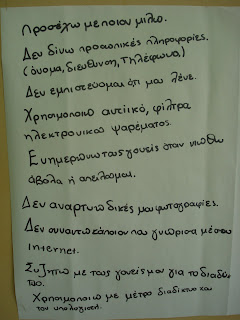 Προσέχω με ποιον μιλω.
Δεν δίνω προσωπικές πληροφορίες.
(όνομα, διεύθυνση, τηλέφωνο,)
Δεν εμπιστεύομαι ότι μου λένε.
Χρησιμοποιώ αντιικό, φίλτρα
ηλεκτρονικού ψαρέματος.
Ενημερώνω τους γονείς όταν νιώθω
άβολα ή απειλούμαι.
Δεν αναρτώ δικές μου φωτογραφίες.
Δεν συναντώ κάποιον που γνώρισα μέσου
Internet.
Συζητώ με τους γονείς μου για το διαδύ-
τυο.
Χρησιμοποιώ με μέτρο διαδίκτυο και
τον υπολογιστή.